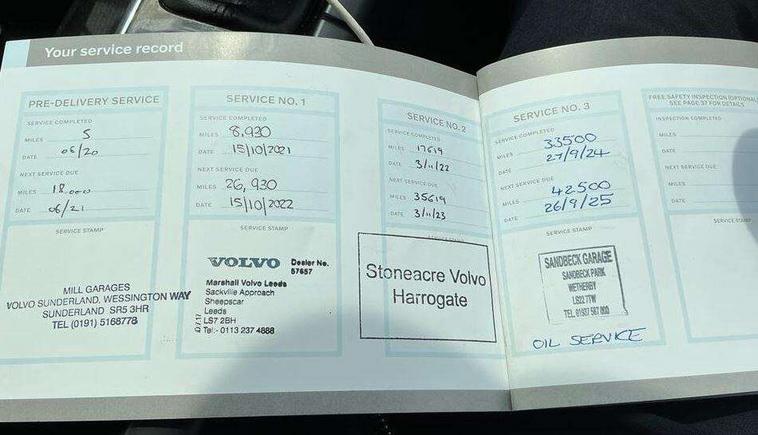 Your service record
PRE-DELIVERY SERVICE
SERVICE COMPLETED
MILES 5
DATE 06/20
NEXT SERVICE DUE
MILES 18,000
DATE 06/21
SERVICE STAMP
MILL GARAGES
VOLVO SUNDERLAND, WESSINGTON WAY
SUNDERLAND SR5 3HR
TEL (0191) 5168778
SERVICE NO. 1
SERVICE COMPLETED
MILES 8,930
DATE 15/10/2021
NEXT SERVICE DUE
MILES 26,930
DATE 15/10/2022
SERVICE STAMP
VOLVO Dealer No.
57657
Marshall Volvo Leeds
Sackville Approach
Sheepscar
Leeds
LS7 2BH
Tel:- 0113 237 4888
SERVICE NO. 2
SERVICE COMPLETED
MILES 17619
DATE 3/11/22
NEXT SERVICE DUE
MILES 35619
DATE 3/11/23
SERVICE STAMP
Stoneacre Volvo
Harrogate
SERVICE NO. 3
SERVICE COMPLETED
MILES 33500
DATE 27/9/24
NEXT SERVICE DUE
MILES 42500
DATE 26/9/25
SERVICE STAMP
SANDBECK GARAGE
SANDBECK PARK
WETHERBY
LS22 7TW
TEL. 01937 587 800
OIL SERVICE
FREE SAFETY INSPECTION (OPTIONAL)
SEE PAGE 37 FOR DETAILS
INSPECTION COMPLETED
MILES
DATE
NEXT SERVICE DUE
MILES
DATE
SERVICE ST